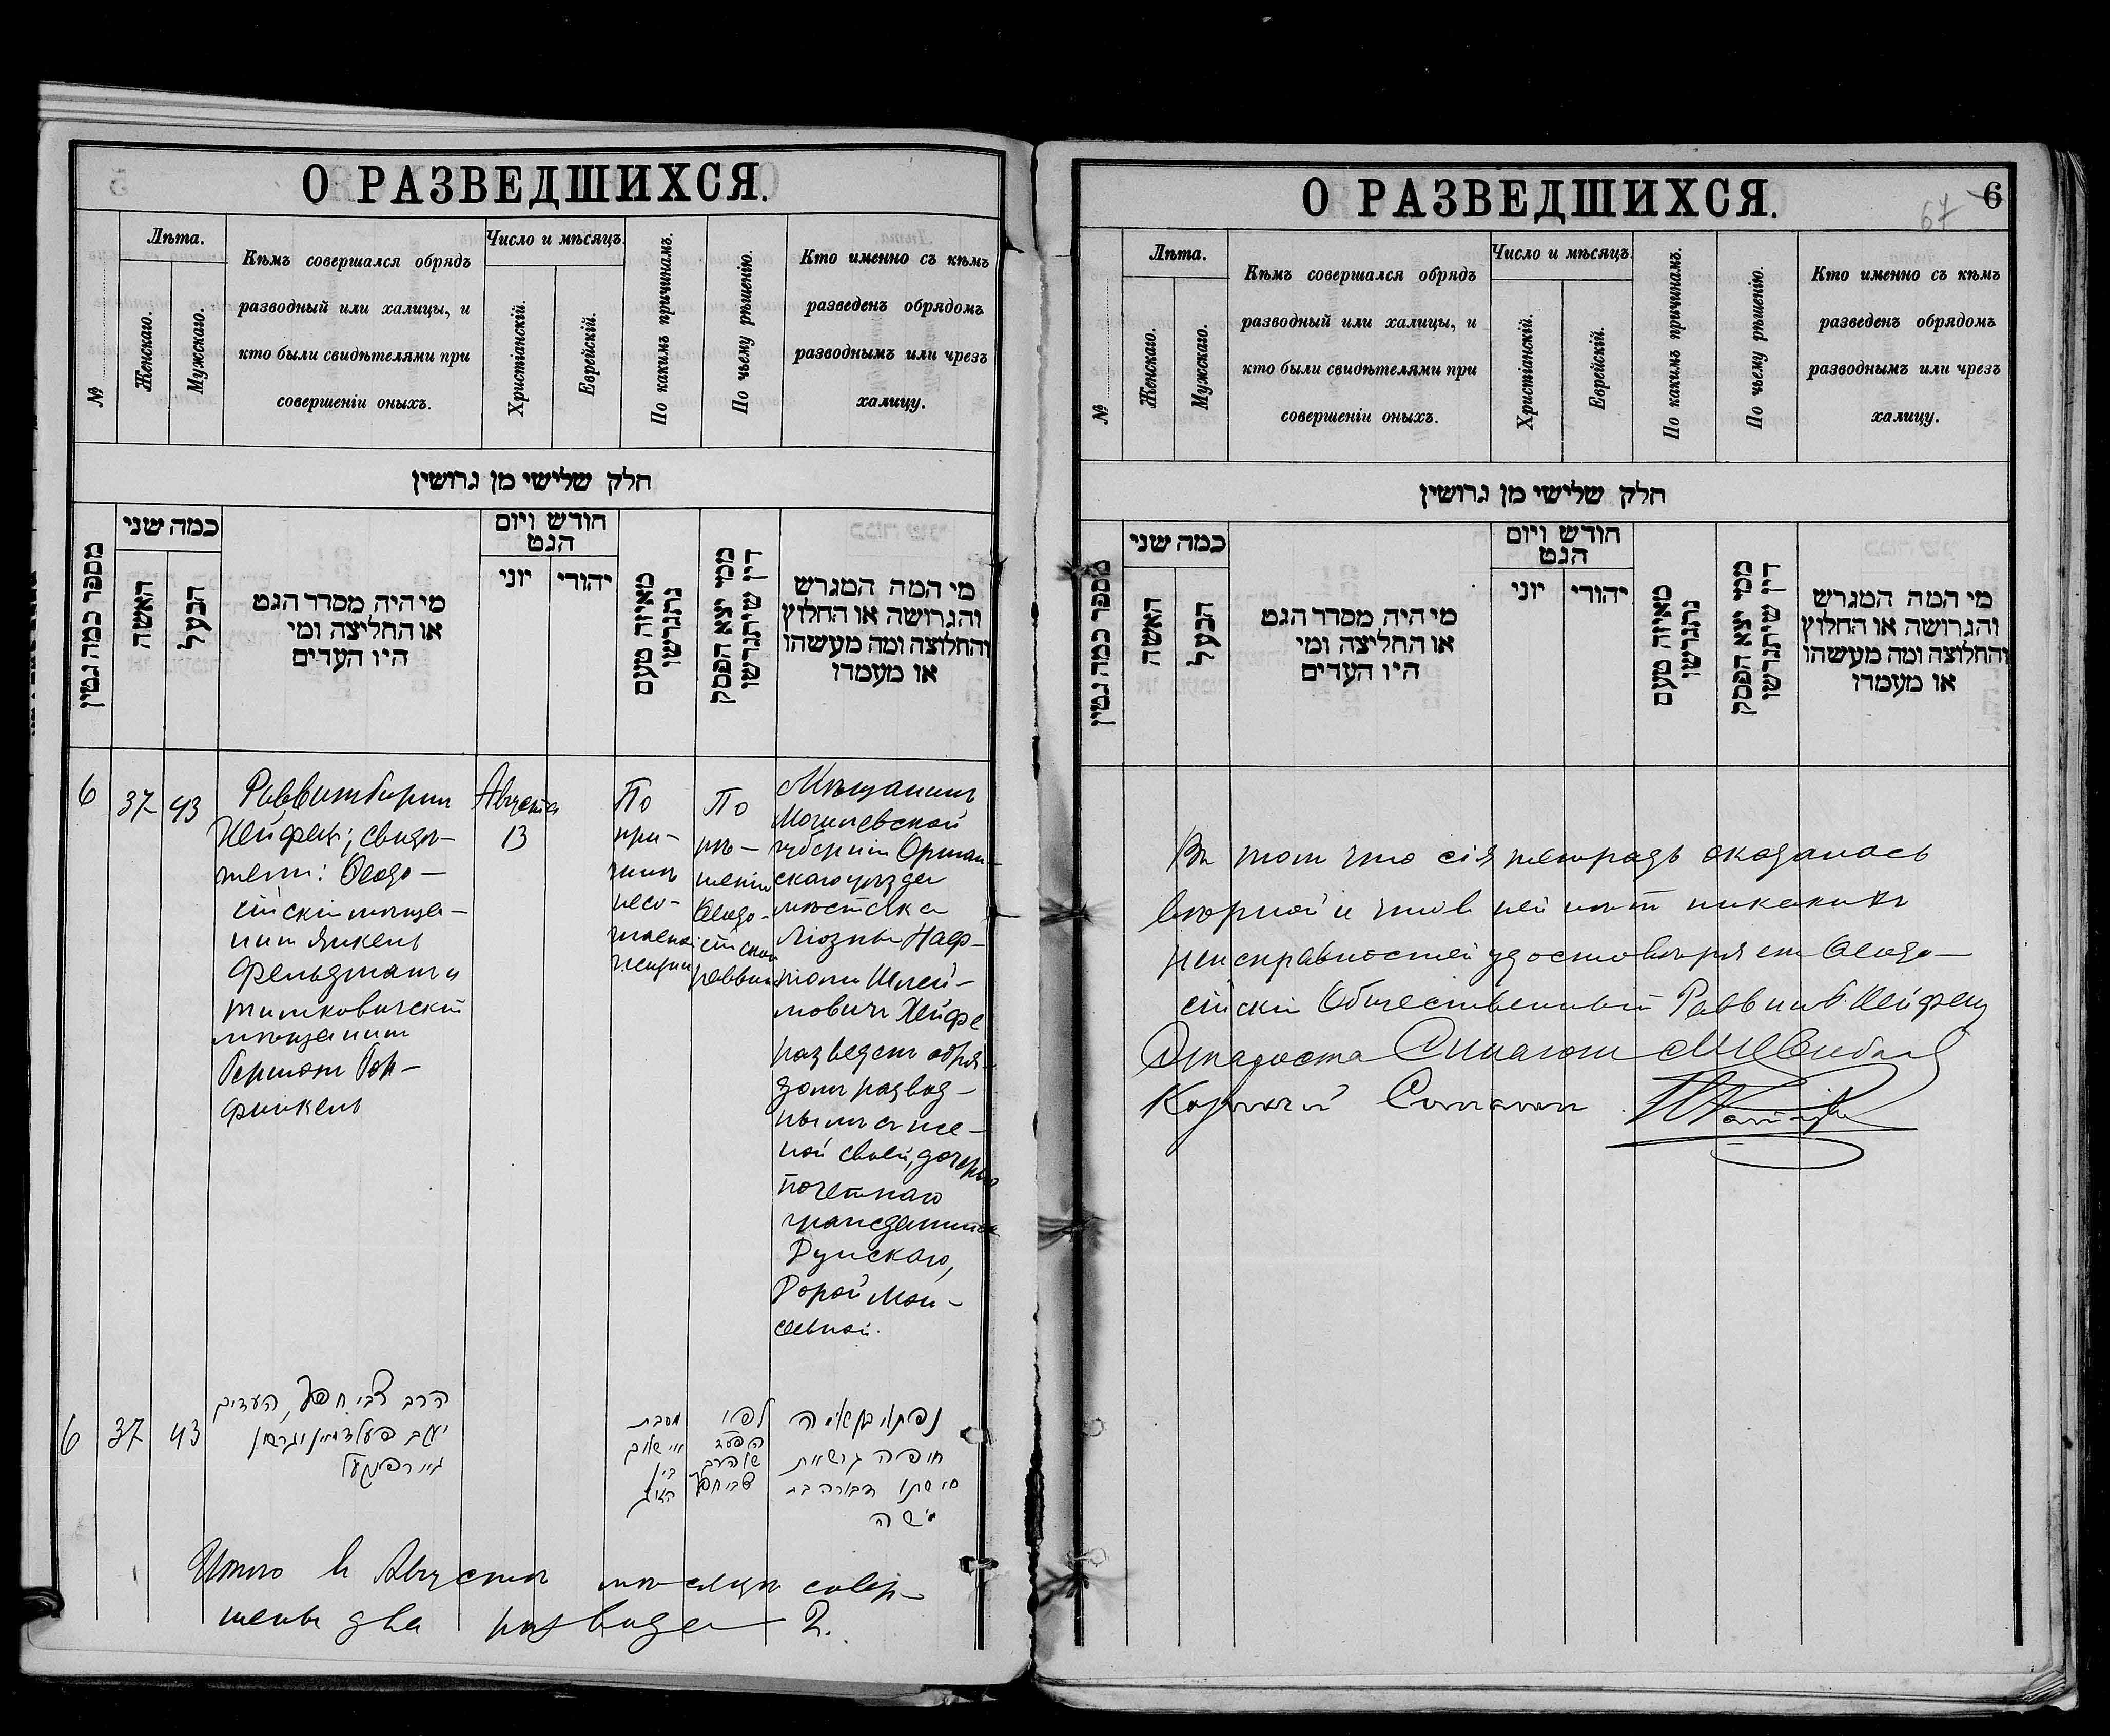 О РАЗВЕДШИХСЯ.
№
Лѣта.
Женскаго.
Мужскаго.
Кѣмъ совершался обрядъ
разводный или халицы, и
кто были свидѣтелями при
совершеніи оныхъ.
Число и мѣсяцъ.
Христіанскій.
Еврейскій.
По какимъ причинамъ.
По чьему рѣшенію.
Кто именно съ кѣмъ
разведенъ обрядомъ
разводнымъ или чрезъ
халицу.
חלק שלישי מן גרושין
מספר כמה גטין
כמה שני
האשה
הבעל
מי היה מסדר הגט
או החליצה ומי
היו העדים
חודש ויום
הגט
יוני
יהודי
מאיזה טעם
נתגרשו
ממי יצא הפסק
דין שיתגרשו
מי המה המגרש
והגרושה או החלוץ
והחלוצה ומה מעשהו
או מעמדו
6
37
43
Раввинъ
Хейфец; свидѣ-
тели: Ѳеодо-
сійскій мѣща-
нинъ Янкель
Фельдманъ и
мѣщанинъ
Августа
13
По
при-
чинѣ
несо-
гласной
жизни
По
рѣ-
шенію
Ѳеодо-
сійскаго
раввина
Мѣщанинъ
Могилевской
губерніи Оршан-
скаго уѣзда
мѣстечка
Лiозны Наф-
толи Шлей-
мовичъ Хейфе
разведенъ обря-
домъ развод-
нымъ съ же-
ной своей, дочерью
почетнаго
гражданина
Дворой Мои-
сеевной.
6
37
43
הרב צבי חפץ, העדים
יעקב פעלדמאן וגרשון
לפי
מסבת
דבורה בת
משה
Итого въ Августѣ мѣсяцѣ совер-
шены два развода 2.
О РАЗВЕДШИХСЯ.
6
67
№
Лѣта.
Женскаго.
Мужскаго.
Кѣмъ совершался обрядъ
разводный или халицы, и
кто были свидѣтелями при
совершеніи оныхъ.
Число и мѣсяцъ.
Христіанскій.
Еврейскій.
По какимъ причинамъ.
По чьему рѣшенію.
Кто именно съ кѣмъ
разведенъ обрядомъ
разводнымъ или чрезъ
халицу.
חלק שלישי מן גרושין
מספר כמה גטין
כמה שני
האשה
הבעל
מי היה מסדר הגט
או החליצה ומי
היו העדים
חודש ויום
הגט
יוני
יהודי
מאיזה טעם
נתגרשו
ממי יצא הפסק
דין שיתגרשו
מי המה המגרש
והגרושה או החלוץ
והחלוצה ומה מעשהו
או מעמדו
Въ томъ что сія тетрадь оказалась
вѣрной и что в ней нѣтъ никакихъ
неисправностей удостовѣряетъ Ѳеодо-
сійскій Общественный Раввинъ Хейфец
Староста Синагоги